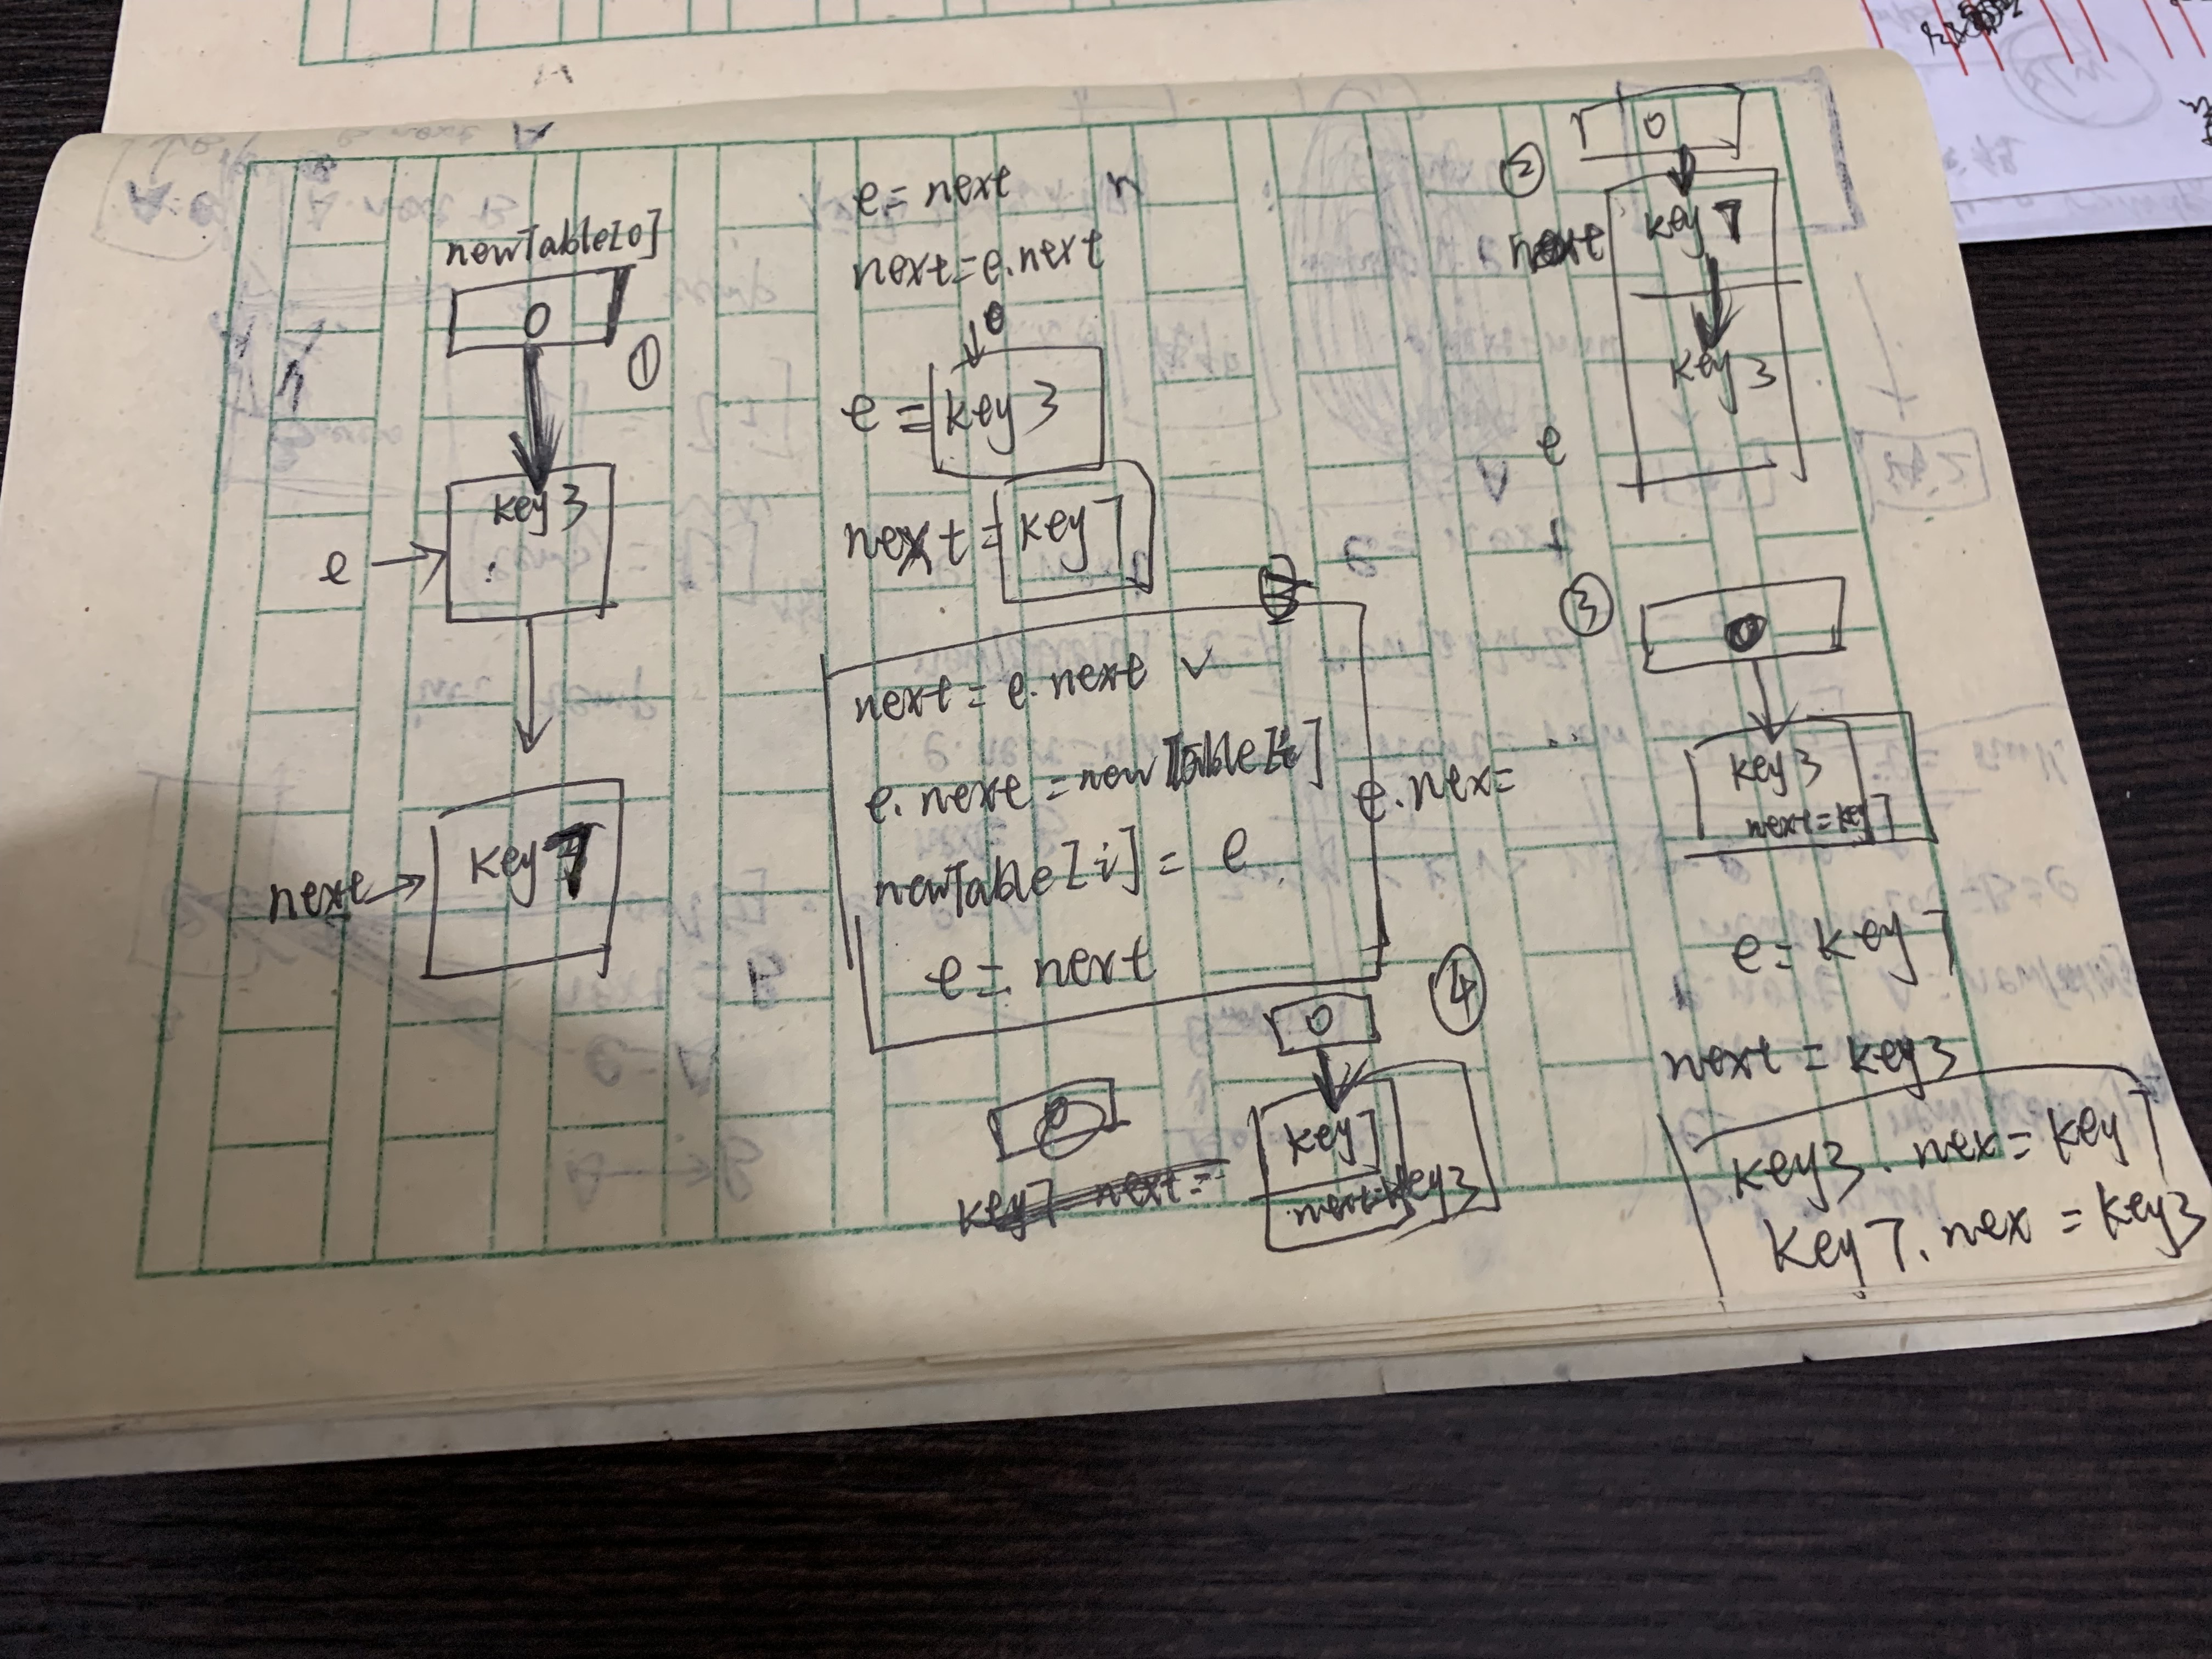 newTable[0]
0
①
key 3
e
key 7
next
e = next
n
next = e.next
0
e = key 3
next = key 7
next = e.next ✓
e.next = newTable[i]
e.nex=
newTable[i] = e
e = next
④
0
key7
next=key3
key7 next=
②
0
key 7
next
key 3
e
③
0
key 3
next=key7
e = key 7
next = key3
key3.nex = key7
key7.nex = key3